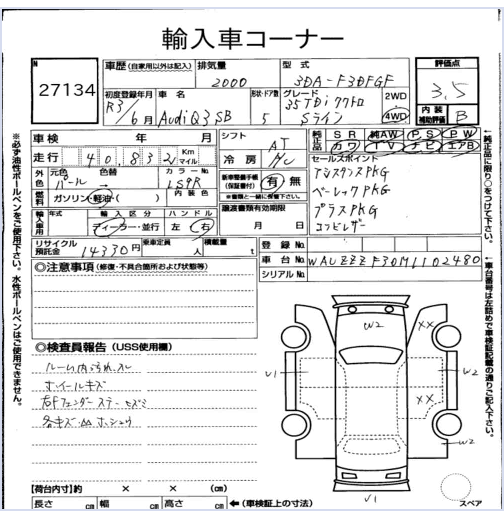 輸入車コーナー
No
27134
車歴 (自家用以外は記入)
排気量
2000
型式
3DA-F3DFGF
評価点
3.5
内装
補助評価
B
初度登録年月
R3/6月
車名
Audi Q3 SB
形状・ドア数
5
グレード
35TDi クワトロ
Sライン
2WD
4WD
車検 年 月
シフト
AT
純正品
SR 純AW P,S PW
カワ TV ナビ エアB
走行 40,832 Km
マイル
冷房
A/C
セールスポイント
アシスタンスPKG
ベーシックPKG
プラスPKG
コンビレザー
外色
元色
パール→
色替
カラーNo
LS9R
新車整備手帳
(保証書付)
有 無
※書類と一緒に保管して下さい。
燃料
ガソリン・軽油・( )
内装色
譲渡書類有効期限
月 日
輸入車用
年式
輸入区分
ディーラー・並行
ハンドル
左 右
リサイクル
預託金
14330円
乗車定員
人
積載量
t
登録No.
車台No.
WAUZZZF30M1102480
シリアルNo.
◎注意事項 (修復・不具合箇所および状態等)
◎検査員報告 (USS使用欄)
ルーム内汚れ、スレ
ホイールキズ
右Fフェンダーステー
各キズ
【荷台内寸】約 × × (cm)
長さ cm 幅 cm 高さ cm ←(車検証上の寸法)
W2
XX
V1
W2
XX
W2
V1
スペア
※必ず油性ボールペンをご使用下さい。水性ボールペンはご使用できません。
←純正品に限り○をつけて下さい。
←車台番号は左詰めで車検証記載の通りご記入下さい。